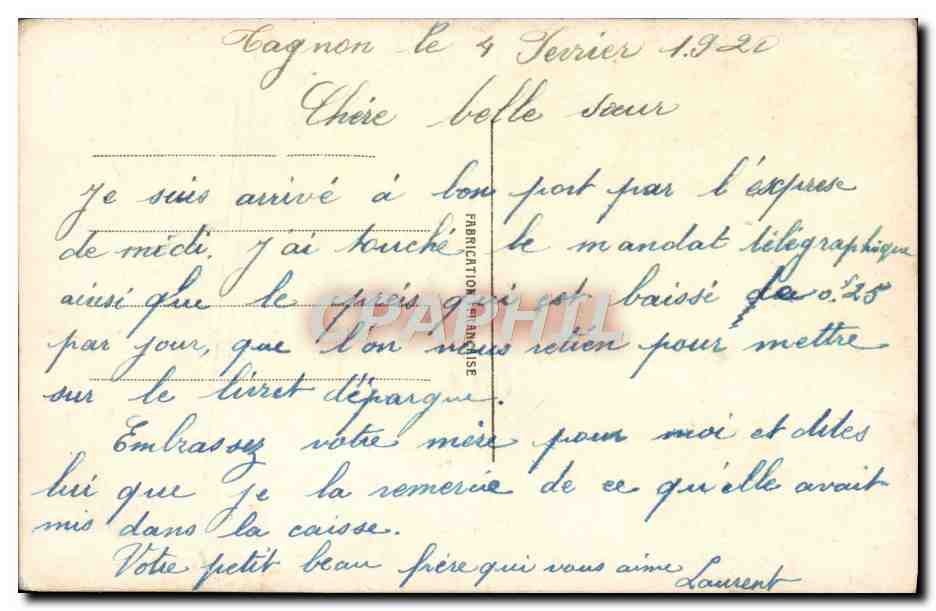 Tagnon le 4 Fevrier 1920
Chére belle sœur
Je suis arrivé á bon port par l'exprese
de midi. J'ai touché le mandat télégraphique
ainsi que le preis qui est baissé de 0f.25
par jour, que l'on nous retien pour mettre
sur le livret d'épargne.
Embrassez votre mére pour moi et dites
lui que je la remercie de ce qu'elle avait
mis dans la caisse.
Votre petit beau frére qui vous aime
Laurent
FABRICATION FRANÇAISE
CPAPHIL